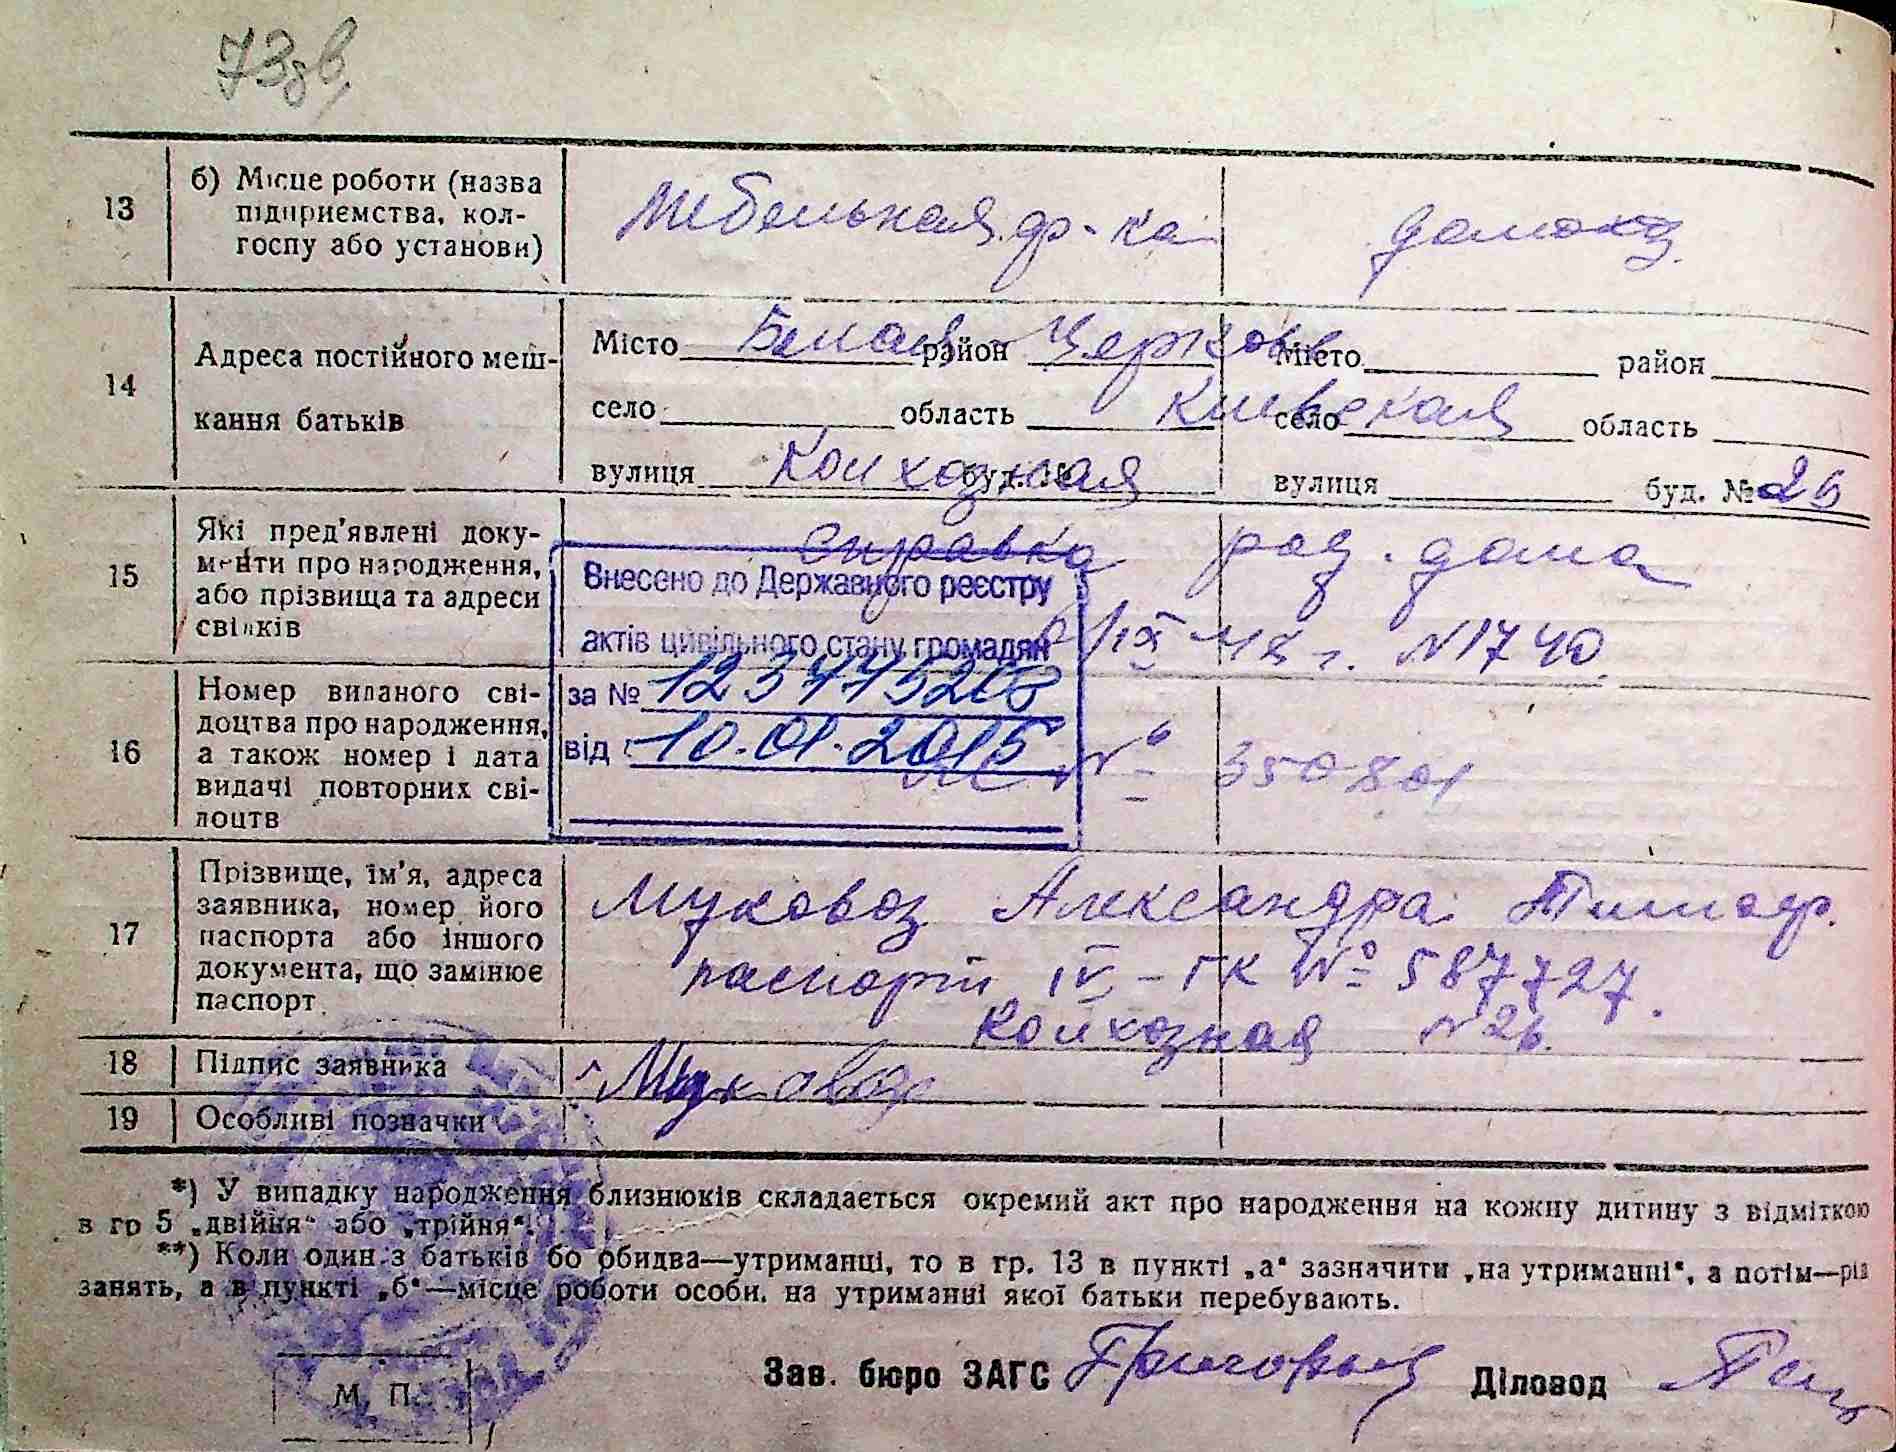 73зв.
13
б) Місце роботи (назва
підприємства, кол-
госпу або установи)
Мебельная ф-ка
домохоз.
14
Адреса постійного меш-
кання батьків
Місто Белая район Церковь Місто район
село область Киевская село область
вулиця Колхозная буд. № вулиця буд. № 26
15
Які пред'явлені доку-
менти про народження,
або прізвища та адреси
свідків
справка род. дома
/IX 48 г. N1740
Внесено до Державного реєстру
актів цивільного стану громадян
за № 123775208
від 10.01.2015
16
Номер виданого сві-
доцтва про народження,
а також номер і дата
видачі повторних сві-
доцтв
№ 350801
17
Прізвище, ім'я, адреса
заявника, номер його
паспорта або іншого
документа, що замінює
паспорт
Муковоз Александра Тимоф.
паспорт IV-ГК № 587727.
Колхозная N 26.
18
Підпис заявника
Муковоз
19
Особливі позначки
*) У випадку народження близнюків складається окремий акт про народження на кожну дитину з відміткою
в гр 5 „двійня“ або „трійня“.
**) Коли один з батьків бо обидва—утриманці, то в гр. 13 в пункті „а“ зазначити „на утриманні“, а потім—рід
занять, а в пункті „б“—місце роботи особи, на утриманні якої батьки перебувають.
Зав. бюро ЗАГС Діловод
М. П.